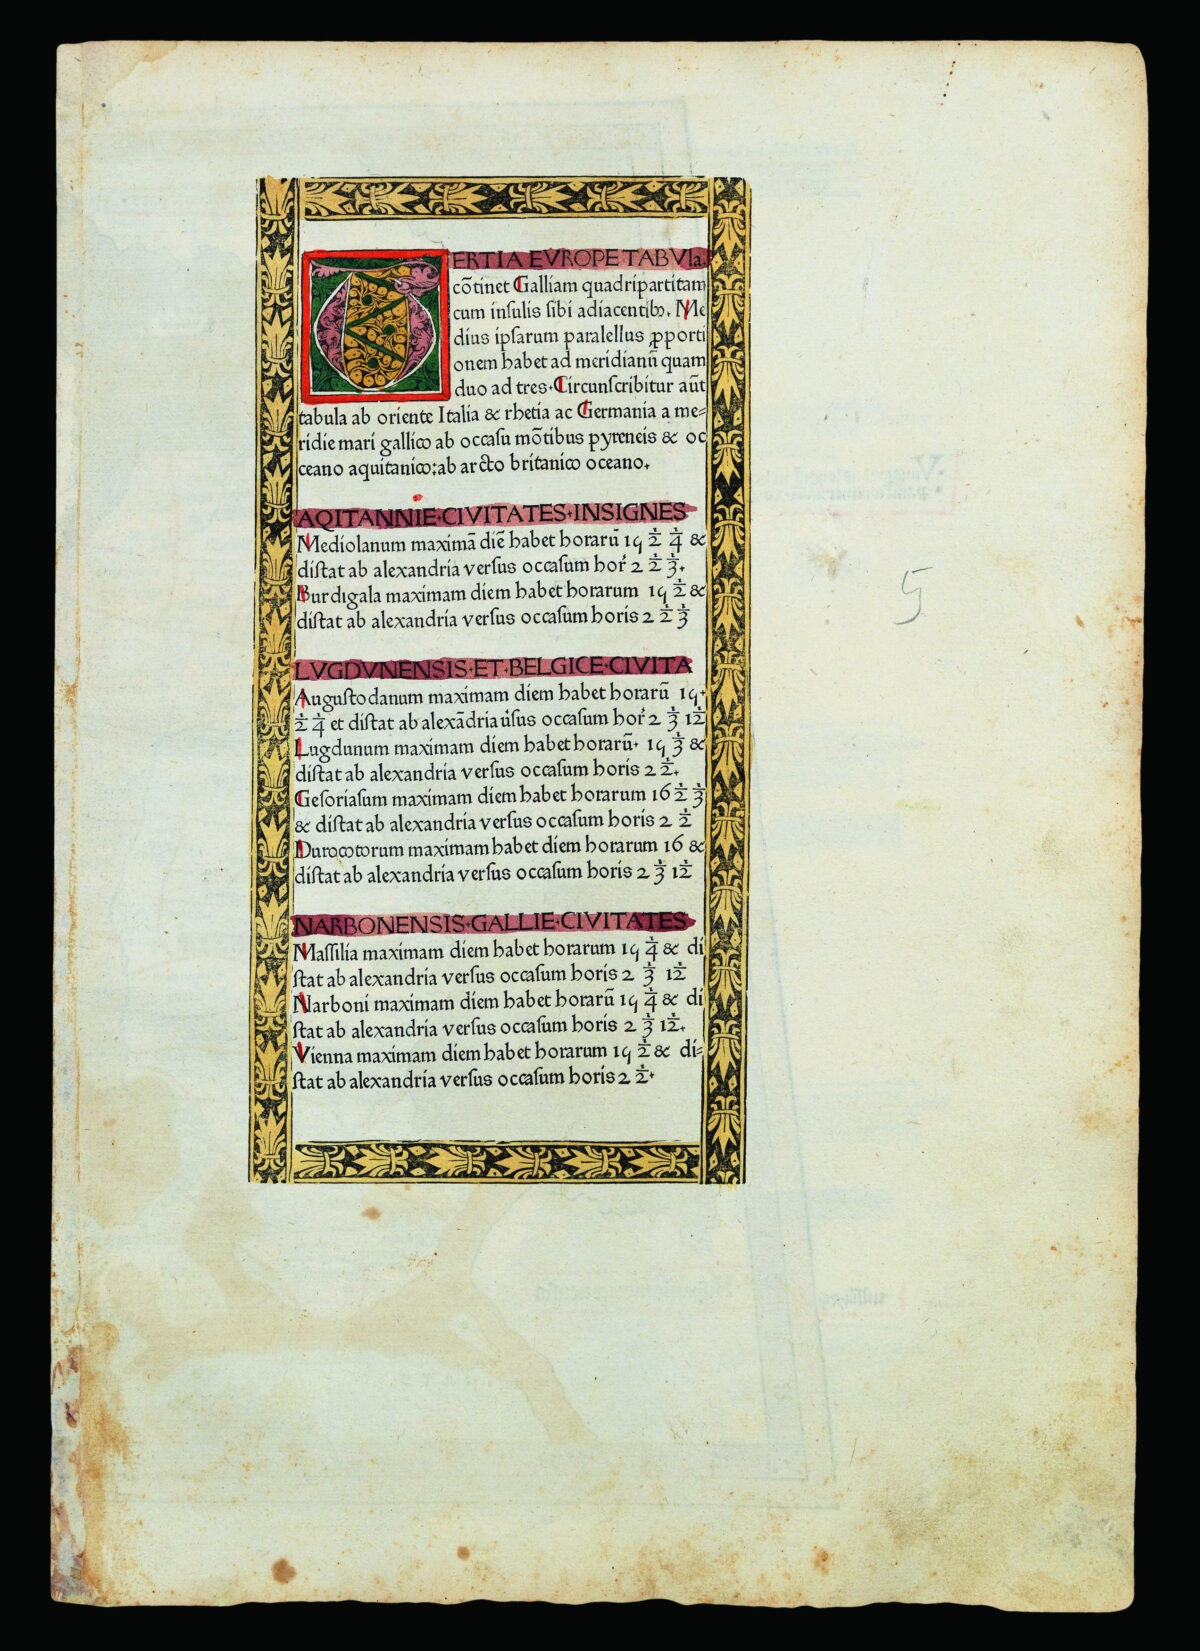 TERTIA EVROPE TABVla.
cõtinet Galliam quadripartitam
cum inſulis ſibi adiacentibꝫ. Me
dius ipſarum paralellus ꝓporti
onem habet ad meridianũ quam
duo ad tres. Circunſcribitur aũt
tabula ab oriente Italia & rhetia ac Germania a me=
ridie mari gallico ab occaſu mõtibus pyreneis & oc
ceano aquitanico: ab arcto britanico oceano.
AQITANNIE·CIVITATES·INSIGNES
Mediolanum maximã diẽ habet horarũ 15 ½ ¼ &
diſtat ab alexandria verſus occaſum hor̃ 2 ½ ⅓.
Burdigala maximam diem habet horarum 15 ½ &
diſtat ab alexandria verſus occaſum horis 2 ½ ⅓
LVGDVNENSIS·ET·BELGICE·CIVITA
Auguſtodanum maximam diem habet horarũ 15.
½ ¼ et diſtat ab alexãdria ũſus occaſum hor̃ 2 ⅓ 1/12
Lugdunum maximam diem habet horarũ. 15 ⅓ &
diſtat ab alexandria verſus occaſum horis 2 ½.
Geſoriaſum maximam diem habet horarum 16 ½ ⅓
& diſtat ab alexandria verſus occaſum horis 2 ½
Durocotorum maximam habet diem horarum 16 &
diſtat ab alexandria verſus occaſum horis 2 ⅓ 1/12
NARBONENSIS·GALLIE·CIVITATES
Maſſilia maximam diem habet horarum 15 ¼ & di
ſtat ab alexandria verſus occaſum horis 2 ⅓ 1/12
Narboni maximam diem habet horarũ 15 ¼ & di
ſtat ab alexandria verſus occaſum horis 2 ⅓ 1/12.
Vienna maximam diem habet horarum 15 ½ & di=
ſtat ab alexandria verſus occaſum horis 2 ½.
5